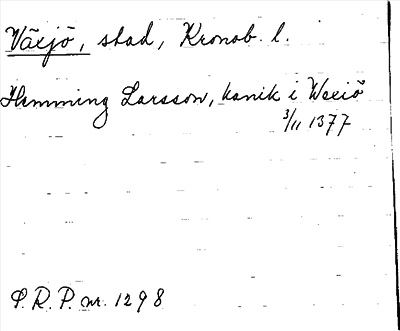 Växjö, stad, Kronob. l.
Hemming Larsson, kanik i Wexiö
3/11 1377
P.R.P. nr. 1298